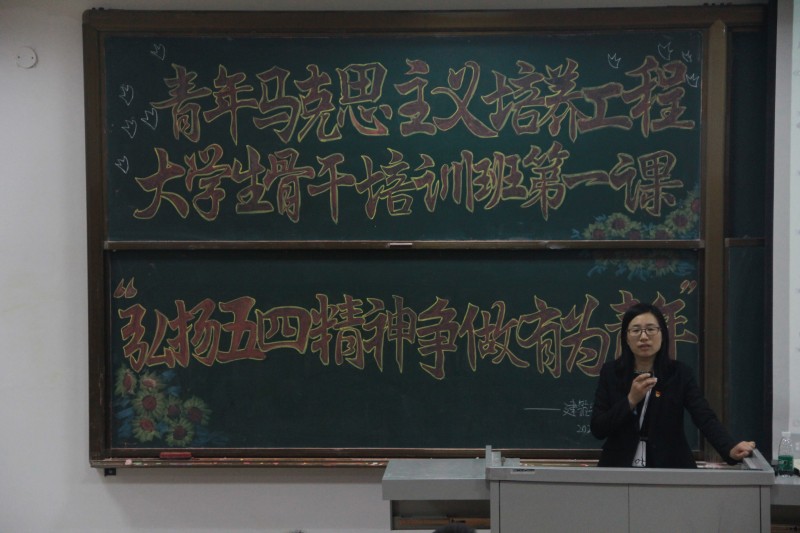 青年马克思主义培养工程
大学生骨干培训班第一课
“弘扬五四精神争做有为青年”
——建
20